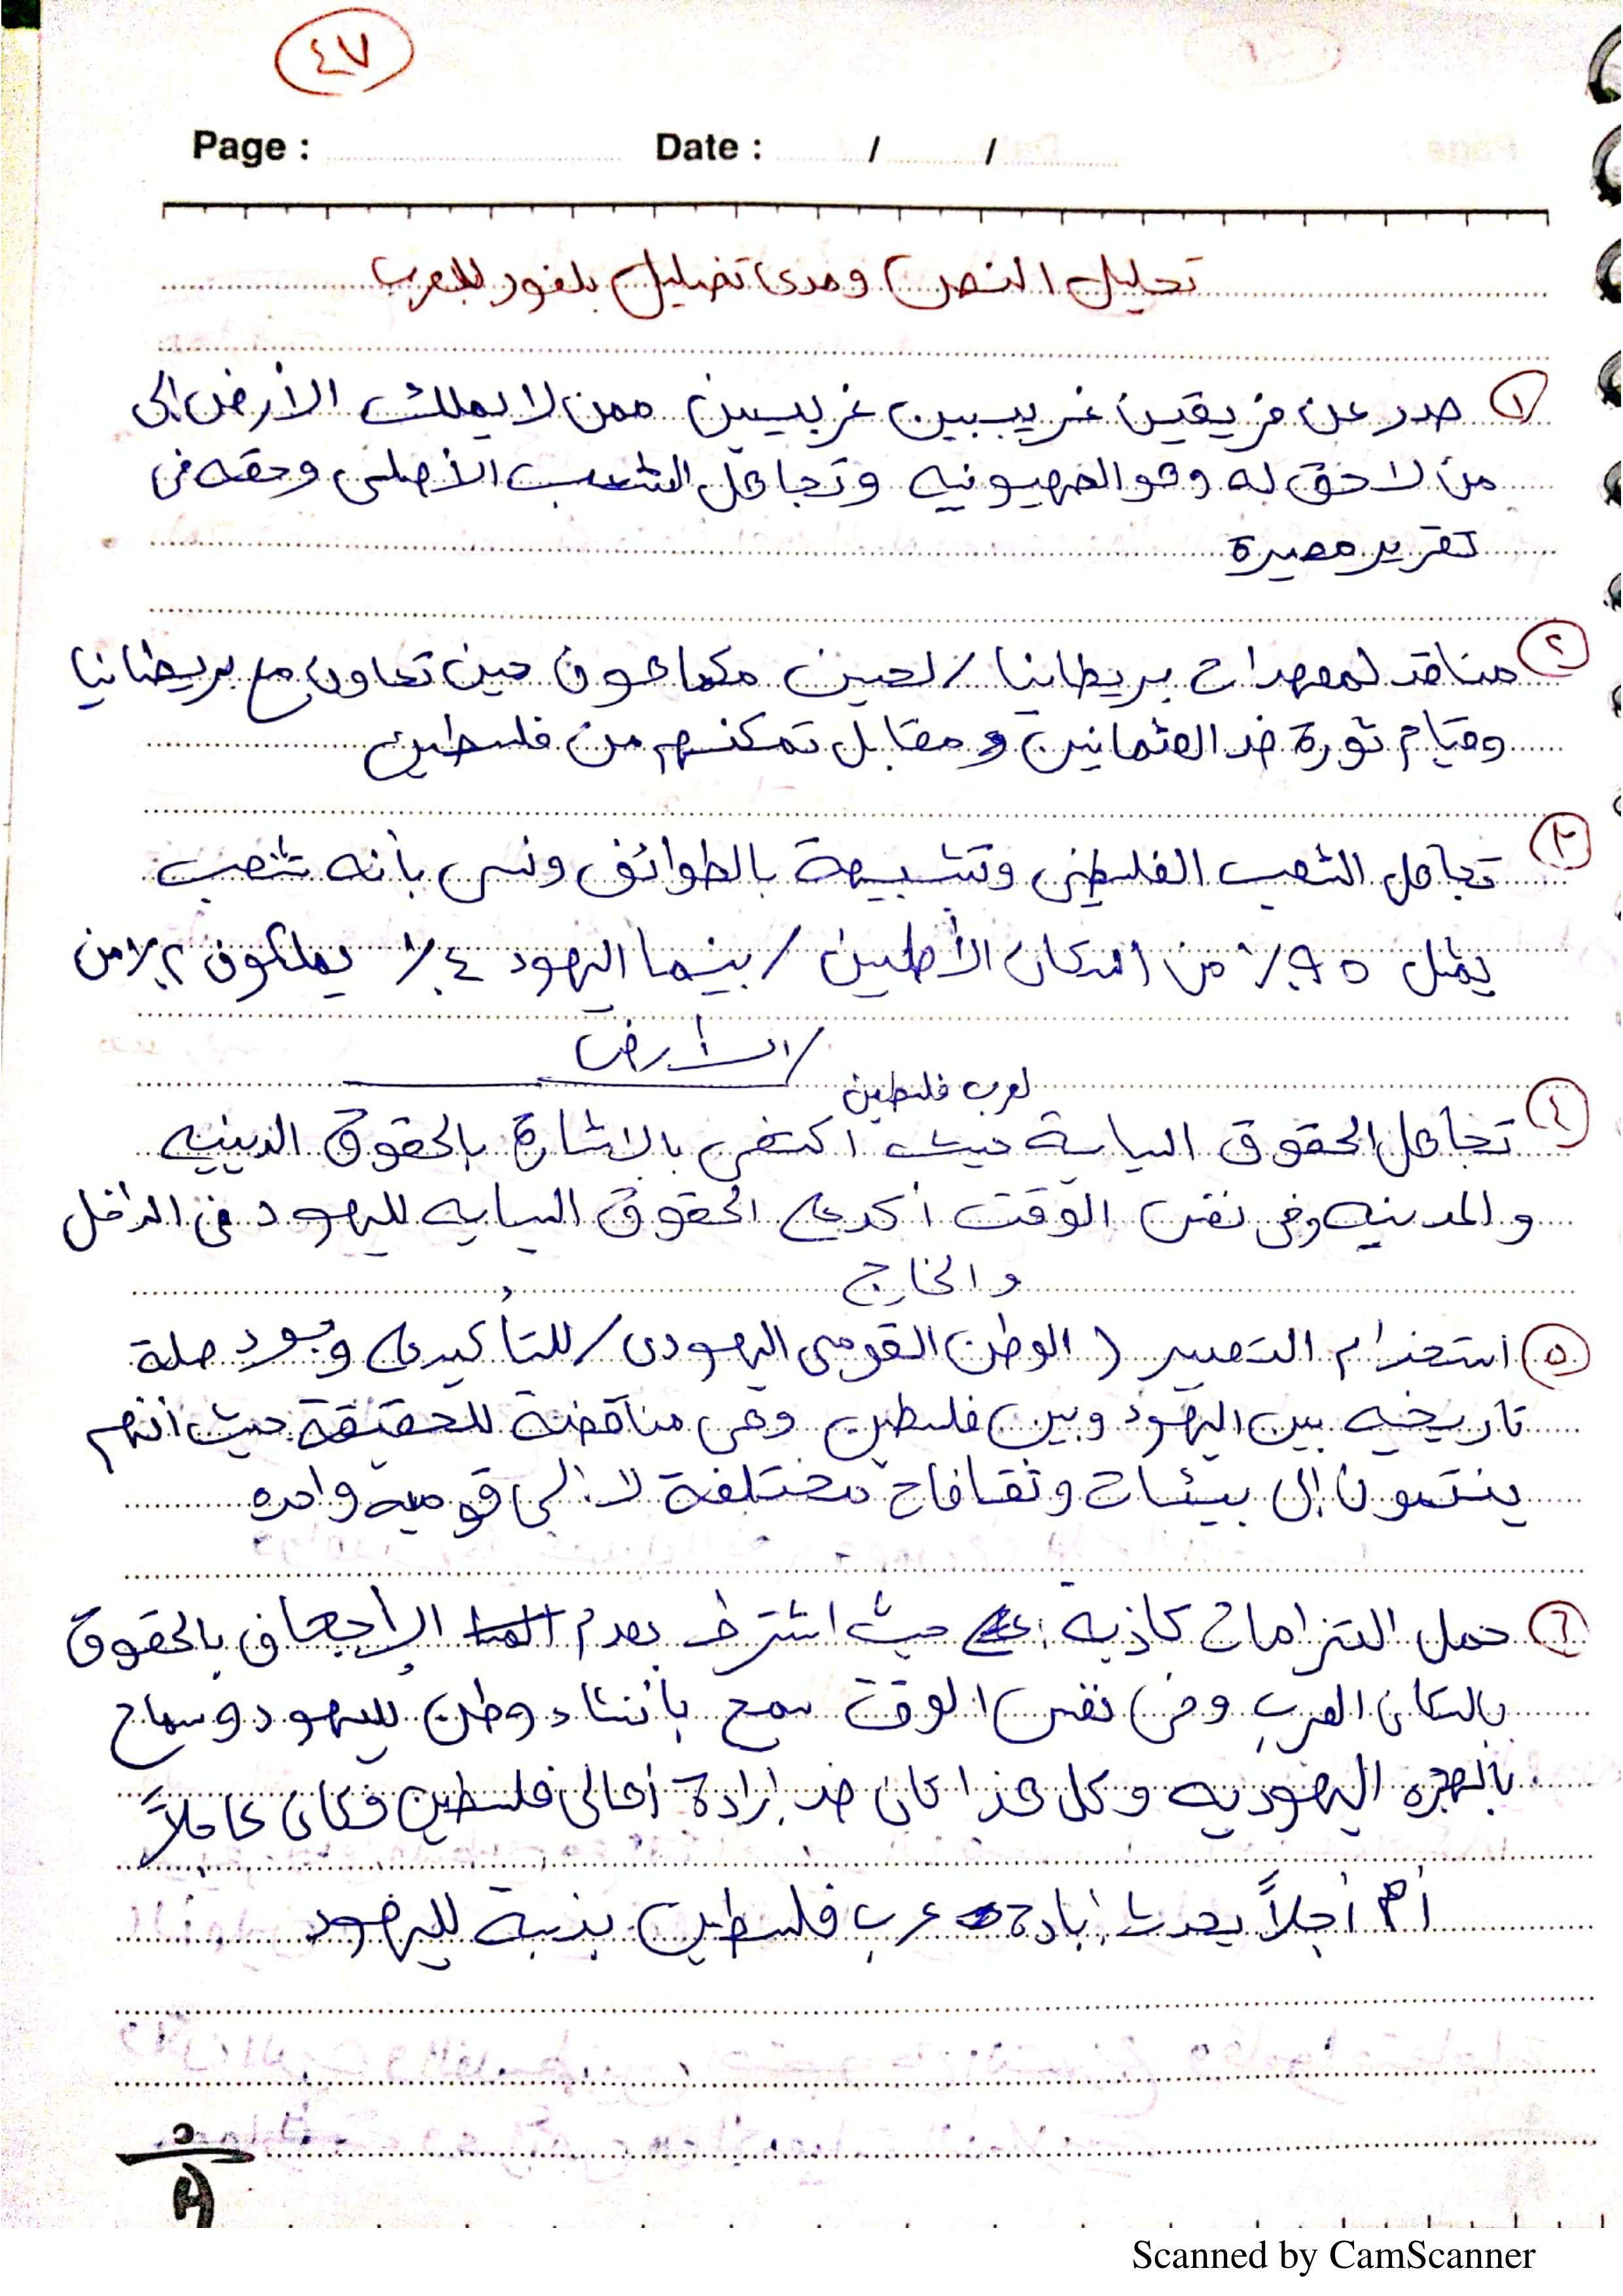 ٤٧
Page : Date : / /
تحليل النص ومدى تضليل بلفور للعرب
١ صدر عن فريقين غريبين غربيين ممن لا يملك الأرض إلى
من لا حق له وهو الصهيونيه وتجاهل الشعب الأصلى وحقه فى
تقرير مصيرة
٢ مناقد لمعهدات بريطانيا / لحسين مكماهون حين تعاون مع بريطانيا
وقيام ثورة ضد العثمانين و مقابل تمكنهم من فلسطين
٣ تجاهل الشعب الفلسطينى وتشبيهة بالطوائف ونسى بأنه شعب
يمثل ٩٥٪ من السكان الأصلين / بينما اليهود ٤٪ يملكون ٢٪ من
/ الأرض
لعرب فلسطين
٤ تجاهل الحقوق السياسية حيث اكتفى بالاشارة بالحقوق الدينيه
والمدنيه وفى نفس الوقت أكد على الحقوق السياسيه لليهود فى الداخل
والخارج
٥ استخدام التعبير ( الوطن القومى اليهودى / للتأكيد على وجود صلة
تاريخيه بين اليهود وبين فلسطين وهى مناقضة للحقيقة حيث أنهم
ينتمون إلى بيئات وثقافات مختلفة لا إلى قوميه واحده
٦ حمل التزامات كاذبة حيث اشترط بعدم الإجحاف بالحقوق
بالسكان العرب وفى نفس الوقت سمح بأنشاء وطن لليهود وسماح
بالهجره اليهوديه وكل هذا كان ضد إرادة أهالى فلسطين فكان عاملاً
أم أجلاً يحدث إبادة عرب فلسطين بنسبة لليهود
Scanned by CamScanner